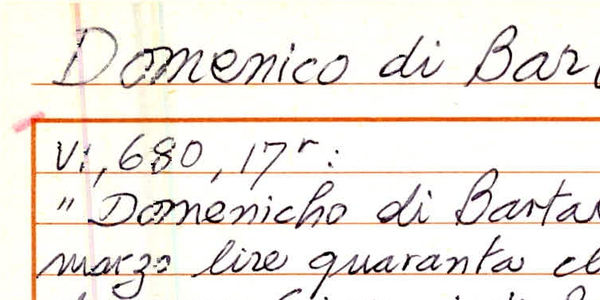 Domenico di Bar
VI, 680, 17r:
" Domenicho di Barta
marzo lire quaranta